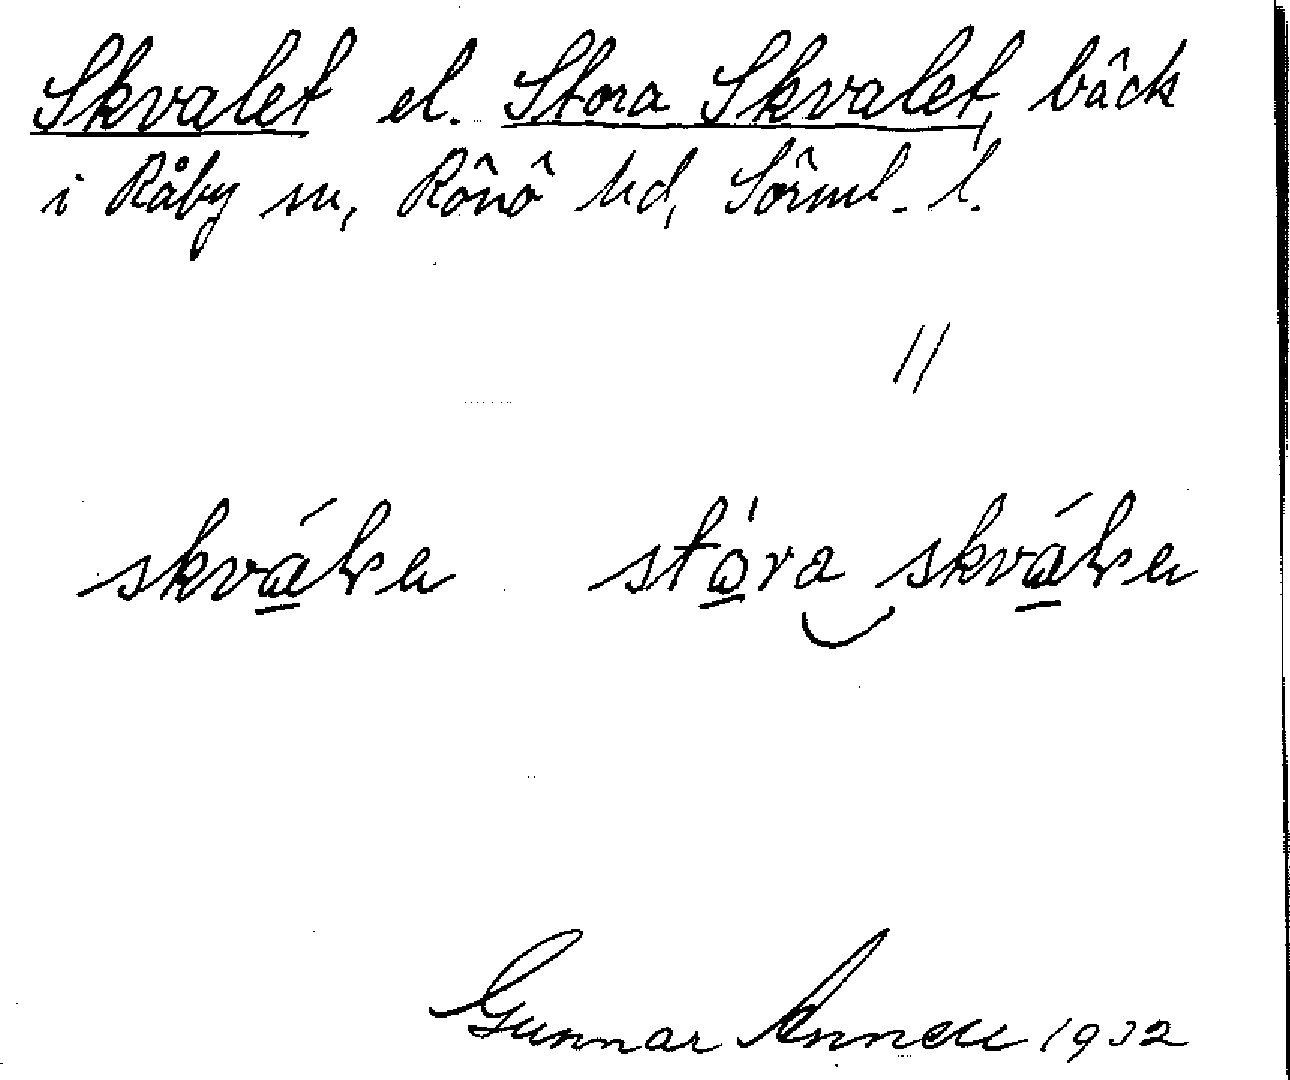 Skvalet el. Stora Skvalet, bäck
i Råby sn, Rönö hd, Sörml. l.
//
skvála stóra skvála
Gunnar Annell 1932